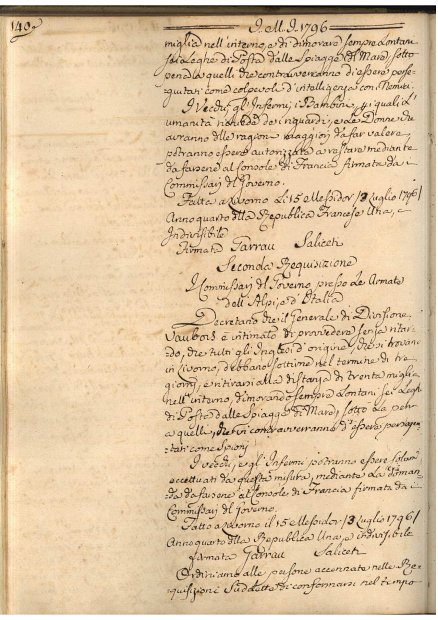 140.
I.M.I. 1796
miglia nell'interno, e di dimorare sempre Lontani
sei Leghe di Posta dalle Spiagge del Mare, sotto
pena a quelli che contraverranno di essere perse-
guitati come colpevoli d'intelligenza con Nemici.
I Vecchi, gl'Infermi, i Bambini, ai quali l'
umanità richiede dei riguardi, e Le Donne che
avranno delle ragioni maggiori da far valere,
potranno essere autorizzate a restare mediante
da farsene al Console di Francia firmata da i
Commissarj del Governo.
Fatta a Livorno Li 15 Messidor /3 Luglio 1796/
Anno quarto della Repubblica Francese Una, e
Indivisibile
Firmata Garrau Saliceti
Seconda Requisizione
I Commissarj del Governo presso Le Armate
dell'Alpi, e d'Italia
Decretano che il Generale di Divisione
Vaubois è intimato di provvedere senza ritar-
do, che tutti gli Inglesi d'origine, che si trovano
in Livorno, debbano sortirne nel termine di tre
giorni, e ritirarsi alla distanza di trenta miglia
nell'interno, dimorando sempre Lontani sei Leghe
di Posta dalle Spiagge di Mare, sotto La pena
a quelli, che vi contravverranno d'essere persegui-
tati come Spioni
I vecchi, e gl'Infermi potranno essere solam.
eccettuati da questa misura, mediante La diman-
da da farsene al Console di Francia firmata da i
Commissarj del Governo.
Fatto a Livorno il 15 Messidor /3 Luglio 1796/
Anno quarto della Repubblica Una, e indivisibile
firmata Garrau Saliceti
Ordiniamo alle persone accennate nelle Re-
quisizioni Suddette di conformarsi nel tempo